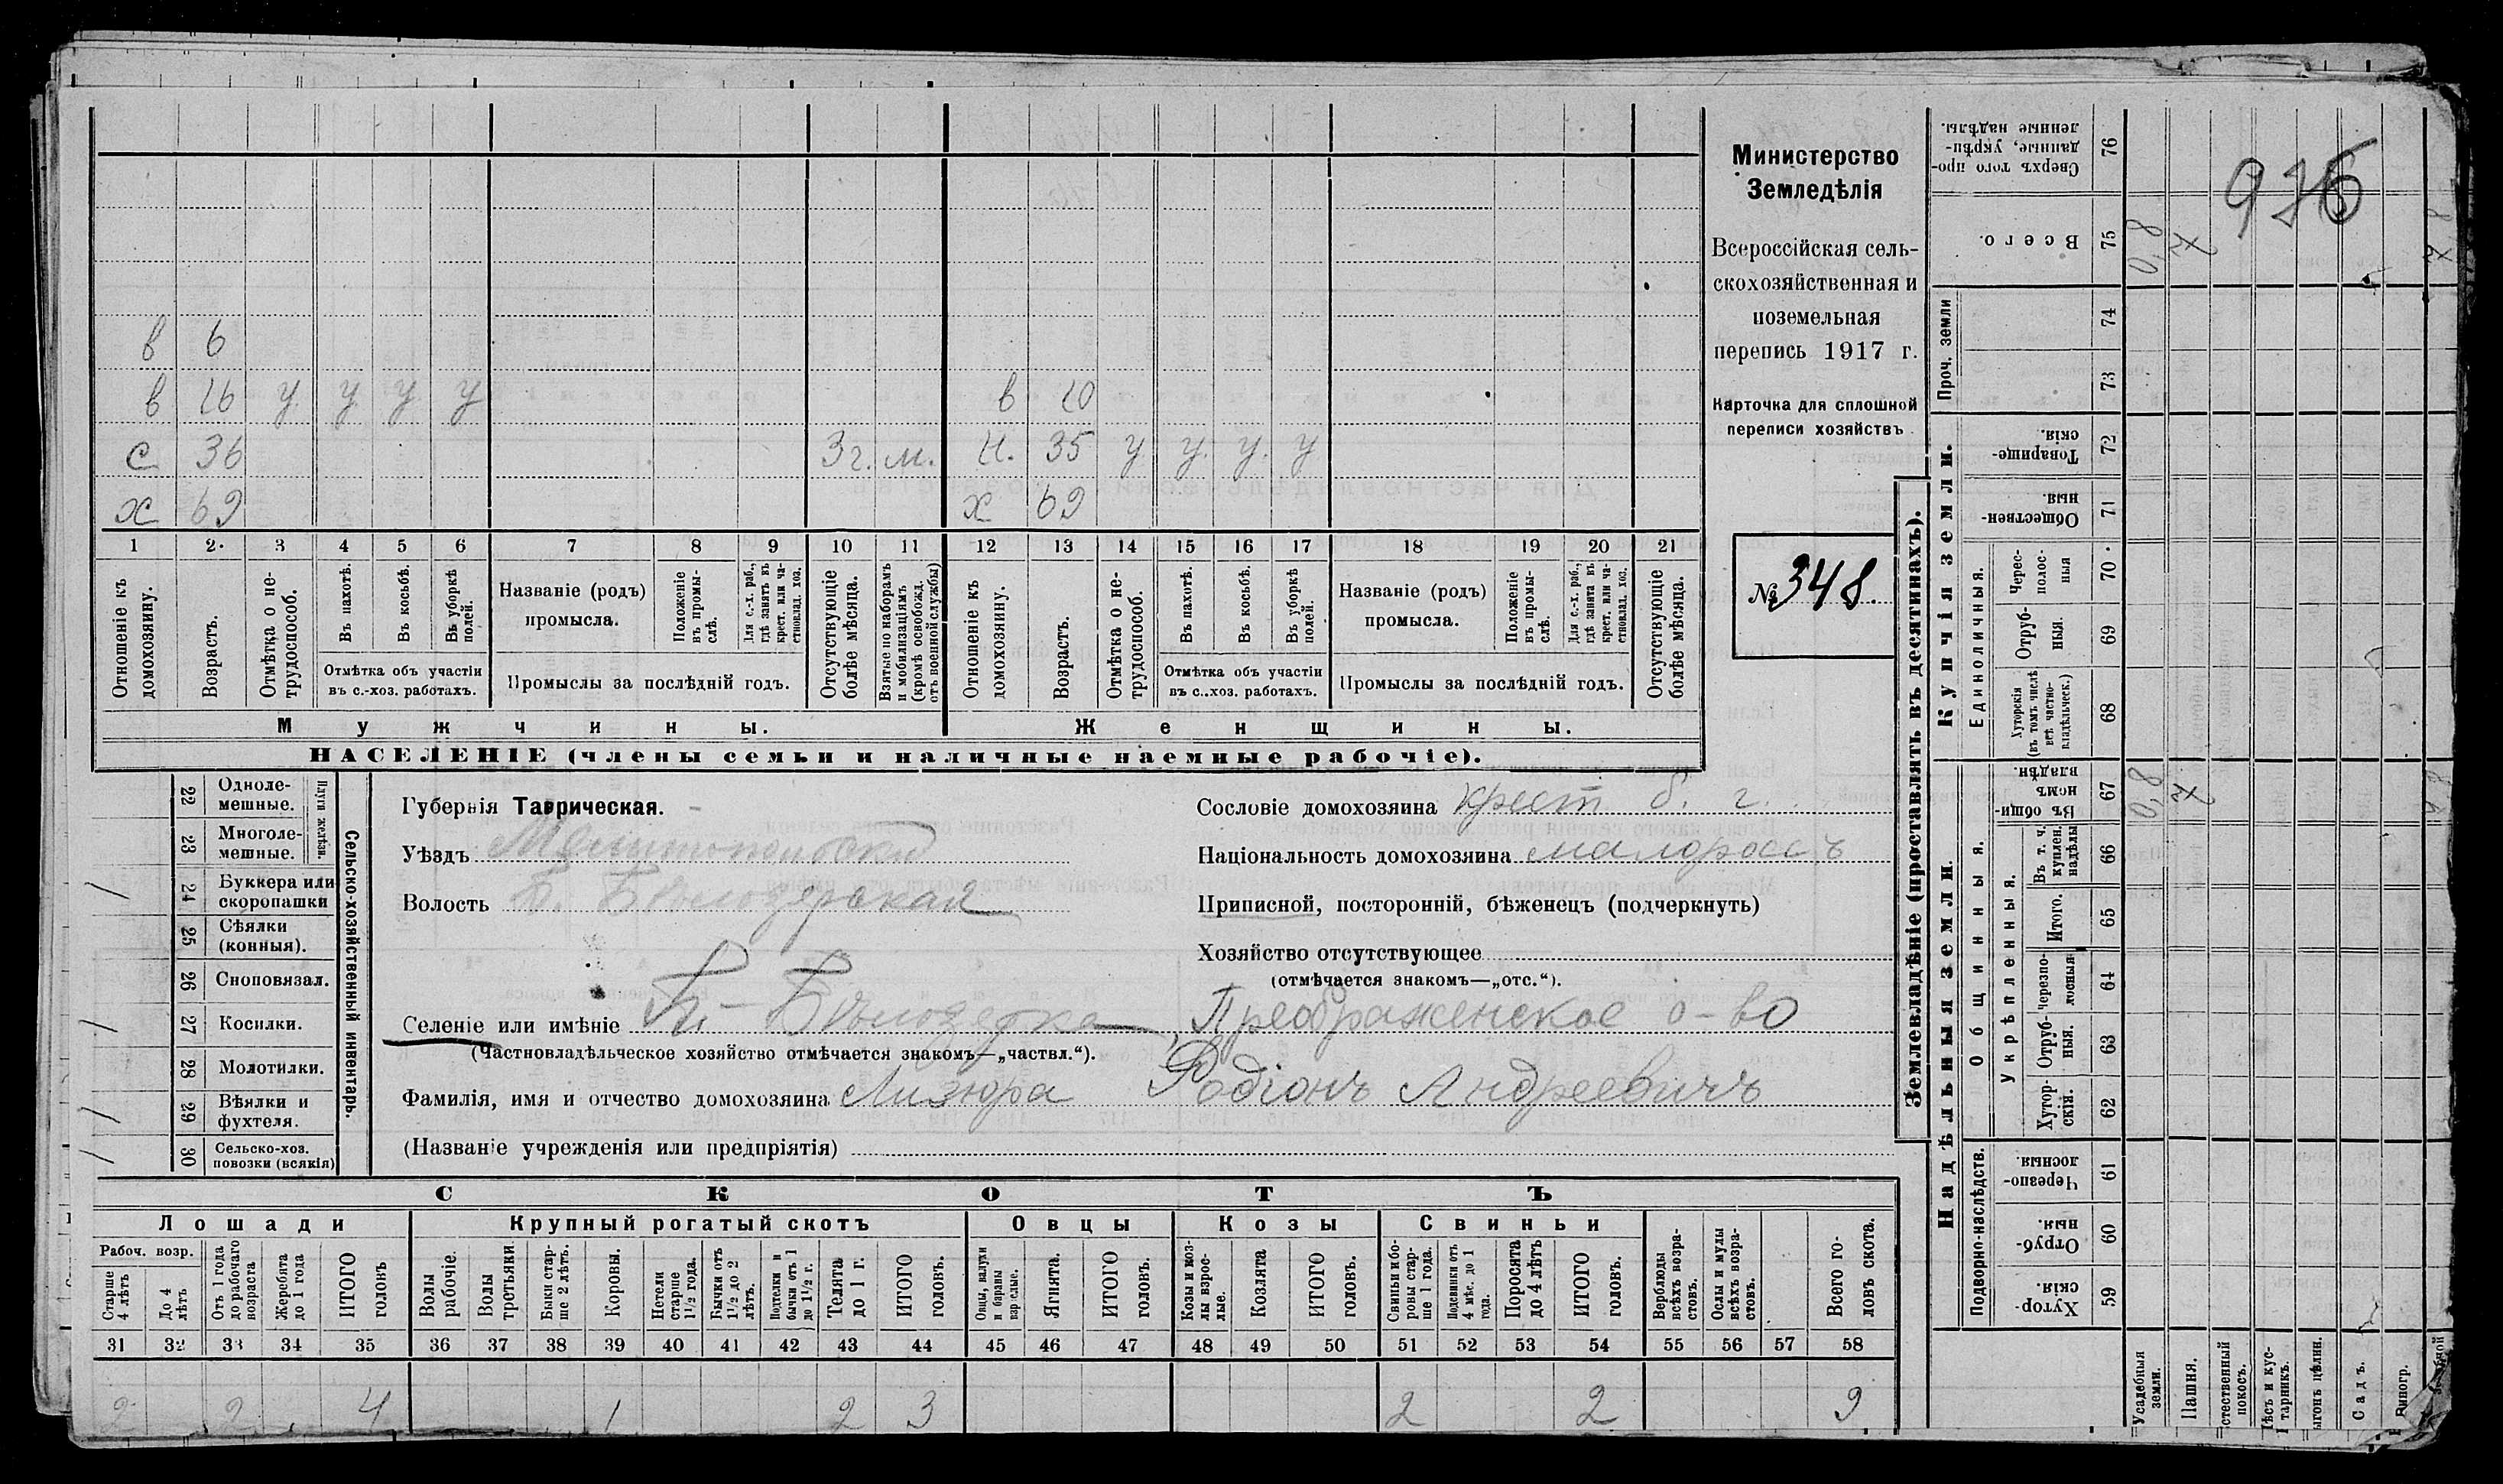 в 6
в 16 у у у у в 10
с 36 3 г. м. н. 35 у у у у
х 69 х 69
1 2 3 4 5 6 7 8 9 10 11 12 13 14 15 16 17 18 19 20 21
Отношеніе къ домохозяину.
Возрастъ.
Отмѣтка о не-
трудоспособ.
Въ пахотѣ.
Въ косьбѣ.
Въ уборкѣ полей.
Отмѣтка объ участіи
въ с.-хоз. работахъ.
Названіе (родъ)
промысла.
Положеніе въ промы-
слѣ.
Для с.-х. раб., гдѣ занятъ въ крест. или ча-
стновлад. хоз.
Промыслы за послѣдній годъ.
Отсутствующіе болѣе мѣсяца.
Взятые по наборамъ и мобилизаціямъ (кромѣ освобожд. отъ военной службы)
Отношеніе къ домохозяину.
Возрастъ.
Отмѣтка о не-
трудоспособ.
Въ пахотѣ.
Въ косьбѣ.
Въ уборкѣ полей.
Отмѣтка объ участіи
въ с.-хоз. работахъ.
Названіе (родъ)
промысла.
Положеніе въ промы-
слѣ.
Для с.-х. раб., гдѣ занята въ крест. или ча-
стновлад. хоз.
Промыслы за послѣдній годъ.
Отсутствующіе болѣе мѣсяца.
Мужчины. Женщины.
НАСЕЛЕНІЕ (члены семьи и наличные наемные рабочіе).
Министерство
Земледѣлія
Всероссійская сель-
скохозяйственная и
поземельная
перепись 1917 г.
Карточка для сплошной
переписи хозяйствъ
№ 348.
22 Одноле-
мешные.
23 Многоле-
мешные.
Плуги желѣзн.
24 Буккера или
скоропашки
25 Сѣялки
(конныя).
26 Сноповязал.
27 Косилки.
28 Молотилки.
29 Вѣялки и
фухтеля.
30 Сельско-хоз.
повозки (всякія)
Сельско-хозяйственный инвентарь.
Губернія Таврическая.
Уѣздъ Мелитопольскій
Волость Б. Бѣлозерская
Селеніе или имѣніе Б.-Бѣлозерка, Преображенское о-во
(Частновладѣльческое хозяйство отмѣчается знакомъ—„частвл.“).
Фамилія, имя и отчество домохозяина Лизюра Родіонъ Андреевичъ
(Названіе учрежденія или предпріятія)
Сословіе домохозяина крест б. г.
Національность домохозяина малороссъ
Приписной, посторонній, бѣженецъ (подчеркнуть)
Хозяйство отсутствующее
(отмѣчается знакомъ—„отс.“).
СКОТЪ
Лошади Крупный рогатый скотъ Овцы Козы Свиньи
Рабоч. возр.
Старше 4 лѣтъ
До 4 лѣтъ
Отъ 1 года до рабочаго возраста
Жеребята до 1 года
ИТОГО головъ
Волы рабочіе.
Волы третьяки.
Быки стар-
ше 2 лѣтъ.
Коровы.
Нетели старше 1½ года.
Бычки отъ 1½ до 2 лѣтъ.
Подтелки и бычки отъ 1 до 1½ г.
Телята до 1 г.
ИТОГО головъ.
Овцы, валухи и бараны взрослые.
Ягнята.
ИТОГО головъ.
Козы и коз-
лы взрос-
лые.
Козлята
ИТОГО головъ.
Свиньи и бо-
ровы стар-
ше 1 года.
Подсвинки отъ 4 мѣс. до 1 года.
Поросята до 4 лѣтъ
ИТОГО головъ.
Верблюды всѣхъ возра-
стовъ.
Ослы и мулы всѣхъ возра-
стовъ.
Всего го-
ловъ скота.
31 32 33 34 35 36 37 38 39 40 41 42 43 44 45 46 47 48 49 50 51 52 53 54 55 56 57 58
2 2 4 1 2 3 2 2 9
Землевладѣніе (проставлять въ десятинахъ).
Купчія земли.
Надѣльныя земли.
Сверхъ того про-
данные, укрѣп-
ленные надѣлы. 76
Всего. 75 0,8 4
976
Проч. земли 74 73
Товарище-
скія. 72
Обществен-
ныя. 71
Единоличныя.
Черес-
полос-
ныя 70
Отруб-
ныя. 69
Хуторскія (въ томъ числѣ всѣ частно-
владѣльческ.) 68
Общинныя.
Въ общи-
номъ владѣн. 67 0,8 4
Укрѣпленныя.
Въ т. ч. куплен. надѣлы 66
Итого. 65
Черезпо-
лосныя 64
Отруб-
ныя. 63
Хутор-
скія. 62
Подворно-наслѣдств.
Черезпо-
лосныя 61
Отруб-
ныя. 60
Хутор-
скія. 59
Усадебныя земли.
Пашня.
стественный покосъ.
ѣсъ и кус-
тарникъ.
ыгонъ цѣлин.
Садъ.
Виногр.